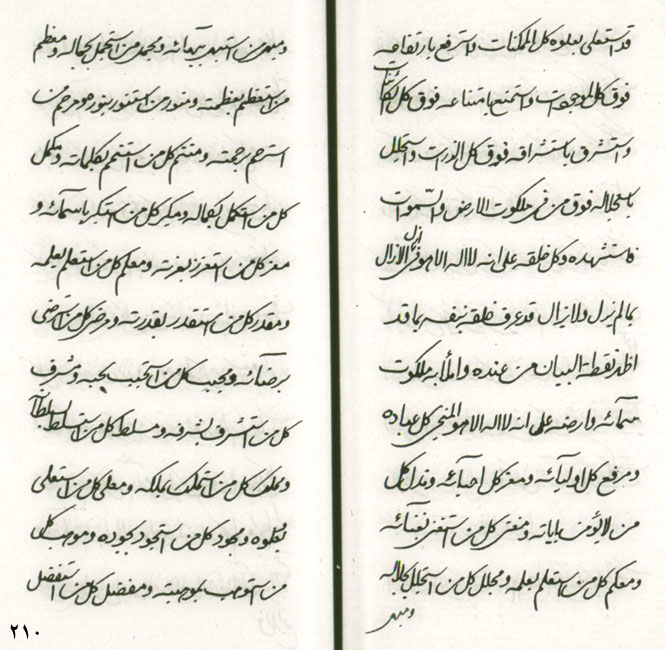 قد استعلی بعلوه کل الممکنات واسترفع بارتفاعه
فوق کل الموجودات واستمنع بامتناعه فوق کل الکائنات
واستشرق باستشراقه فوق کل الذرات واستجلل
باستجلاله فوق من فی ملکوت الارض والسموات
فاستشهده وکل خلقه علی انه لا اله الا هو فی ازل الآزال
بما لم یزل ولا یزال قد عرف خلقه نفسه بما قد
اظهر نقطة البیان من عنده واملأ به ملکوت
سمائه وارضه علی انه لا اله الا هو المنجی کل عباده
ومرفع کل اولیائه ومعزز کل احبائه ومذل کل
من لا یؤمن بایاته ومغنی کل من استغنی بغنائه
ومعلم کل من استعلم بعلمه ومجلل کل من استجلل بجلاله
ومبهی
ومبهی من استبهی ببهائه ومجمل من استجمل بجماله ومعظم
من استعظم بعظمته ومنور من استنور بنوره ومرحم من
استرحم برحمته ومتمم کل من استتم بکلماته ومکمل
کل من استکمل بکماله ومکبر کل من استکبر باسمائه و
معزز کل من استعزز بعزته ومعلم کل من استعلم بعلمه
ومقدر کل من استقدر بقدرته ومرضی کل من استرضی
برضائه ومحبب کل من استحبب بحبه ومشرف
کل من استشرف بشرفه ومسلط کل من استسلط بسلطانه
ومملک کل من استملک بملکه ومعلی کل من استعلی
بعلوه ومجود کل من استجود بجوده وموهب کل
من استوهب بموهبته ومفضل کل من استفضل
۲۱۰